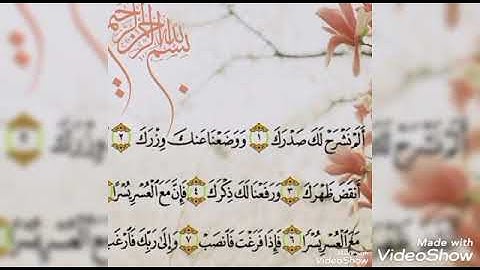 بسم الله الرحمن الرحيم
أَلَمْ نَشْرَحْ لَكَ صَدْرَكَ ١ وَوَضَعْنَا عَنكَ وِزْرَكَ ٢
أَنقَضَ ظَهْرَكَ ٣ وَرَفَعْنَا لَكَ ذِكْرَكَ ٤ فَإِنَّ مَعَ ٱلْعُسْرِ يُسْرًا
مَعَ ٱلْعُسْرِ يُسْرًا ٦ فَإِذَا فَرَغْتَ فَٱنصَبْ ٧ وَإِلَىٰ رَبِّكَ فَٱرْغَب
Made with
VideoShow
Made with
VideoShow